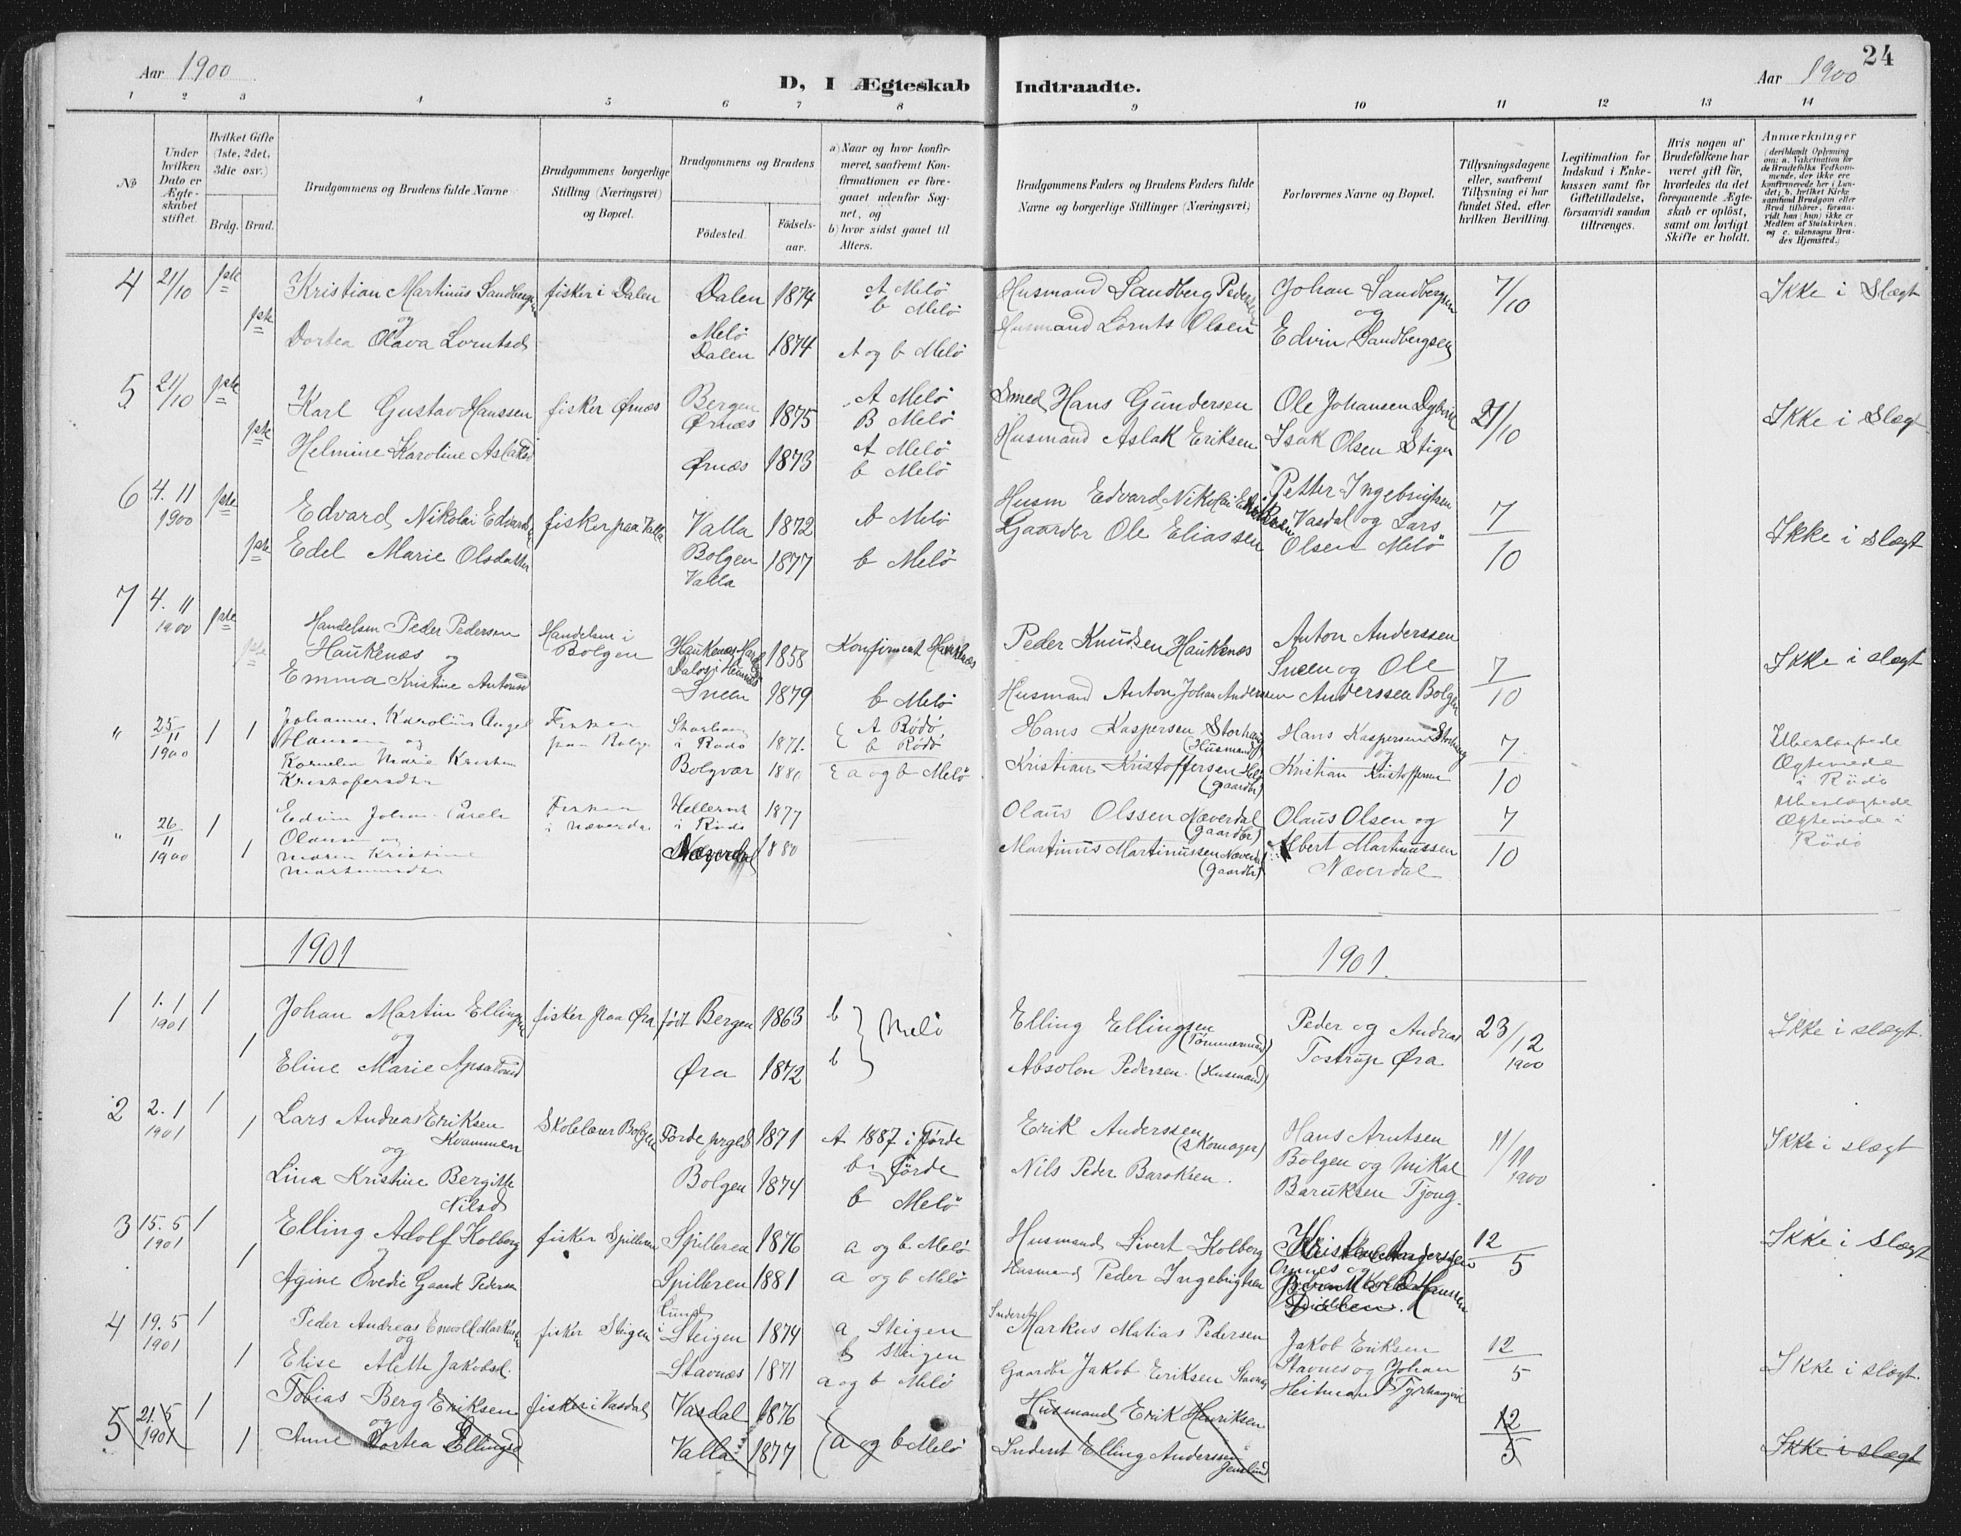 24
Aar 1900
D, I Ægteskab Indtraadte.
Aar 1900
1 2 3 4 5 6 7 8 9 10 11 12 13 14
No
Under hvilken Dato er Ægteskabet stiftet.
Hvilket Gifte (1ste, 2det, 3die osv.)
Brdg. Brud.
Brudgommens og Brudens fulde Navne
Brudgommens borgerlige Stilling (Næringsvei) og Bopæl.
Brudgommens og Brudens
Fødested.
Fødselsaar.
a) Naar og hvor konfirmeret, saafremt Konfirmationen er foregaaet udenfor Sognet, og
b) hvor sidst gaaet til Alters.
Brudgommens Faders og Brudens Faders fulde Navne og borgerlige Stillinger (Næringsvei)
Forlovernes Navne og Bopæl.
Tillysningsdagene eller, saafremt Tillysning ei har fundet Sted, efter hvilken Bevilling.
Legitimation for Indskud i Enkekassen samt for Giftetilladelse, forsaavidt saadan tiltrænges.
Hvis nogen af Brudefolkene har været gift før, hvorledes da det foregaaende Ægteskab er opløst, samt om lovligt Skifte er holdt.
Anmærkninger
4 21/10 1ste Kristian Martinus Sandbergsen fisker i Dalen Dalen 1874 A Melö b Melö Husmand Sandberg Pedersen Johan Sandbergsen 7/10 Ikke i Slægt
og
1ste Dortea Olava Lorntsd Melö Dalen 1874 A og b Melö Husmand Lornts Olsen og Edvin Sandbergsen
5 21/10 1ste Karl Gustav Hanssen fisker Ørnæs Bergen Ørnæs 1875 A Melö B Melö Smed Hans Gundersen Ole Johansen 21/10 Ikke i Slægt
1ste Helmine Karoline Aslaksd Ørnæs 1873 A Melö b Melö Husmand Aslak Eriksen Isak Olsen Stigen
6 4.11 1900 1ste Edvard Nikolai Edvards fisker paa Valla Valla 1872 A Melö Husm Edvard Nikolai Petter Ingebrigtsen 7/10 Ikke i slægt
1ste Edel Marie Olsdatter Bolgen Valla 1877 b Melö Gaardbr Ole Eliassen Vasdal og Lars Olsen Melö
7 4.11 1900 1ste Handelsm Peder Pedersen Haukenæs og Handelsm i Bolgen Haukenæs 1858 Konfirmert Peder Knudsen Haukenæs Anton Anderssen 7/10 Ikke i slægt
1ste Emma Kristine Antonsd Sneen 1879 b Melö Husmand Anton Johan Andersen Sneen og Ole Anderssen Bolgen
" 25/11 1900 1 1 Johannes Karolius Angel Hansen og 1871. A Rödö b Rödö Hans Kaspersen Storhaug (Husmand) Hans Kaspersen Storhaug 7/10 Ubeslægtede Ægteviede i Rödö
Kornelia Marie Kristine Kristofersdtr Bolgvær 1880 a og b Melö Kristian Kristoffersen (Gaardbr) og Kristian Kristoffersen
" 26/11 1900 1 Edvin Johan Olausen og i Rödö 1877 Olaus Olssen Næverdal (gaardbr) Olaus Olsen og 7/10 Ubeslægtede Ægteviede i Rödö
1 Maren Kristine Næverdal 1880 Martinus Martinussen Næverdal (Gaardbr) Albert Martinussen Næverdal
1901
1901.
1 1.1 1901 1 Johan Martin Ellingsen fisker paa Øra født Bergen 1863 b Melö Elling Ellingsen (Tømmermand) Peder og Andreas 23/12 1900 Ikke i slægt.
og
1 Eline Marie Øra 1872 b Absolon Pedersen. (Husmand) Tostrup Øra
2 2.1 1901 1 Lars Andreas Eriksen Kvammen Skolelærer Bolgen Förde prgld 1871 A 1887 i Förde b Förde Erik Anderssen (Skomager) Hans Arntsen 11/11 1900 Ikke i slægt
og
1 Lina Kristine Bergitte Nilsd Bolgen 1874 b Melö Nils Peder Baroksen. Bolgen og Mikal Baruksen Tjong.
3 15.5 1901 1 Elling Adolf Kolberg fisker Spilderen Spilderen 1876 a og b Melö Husmand Sivert Kolberg 12/5 Ikke i Slægt
og
1 Agine Ovedie Gaard Pedersen Spilderen 1881 a og b Melö Husmand Peder Ingebrigtsen
4 19.5 1901 1 Peder Andreas Enevold Markusen fisker Steigen Lund i Steigen 1874 a Steigen b Steigen Inderst Markus Matias Pedersen Jakob Eriksen 12/5 Ikke i slægt.
og
1 Elise Alette Jakobsd. Stavnæs 1871 a og b Melö Gaardbr Jakob Eriksen Stavnæs Stavnes og Johan Heitmand
5 21.5 1901 1 Tobias Berg Eriksen fisker i Vasdal Vasdal 1876 Husmand Erik Henriksen 12/5 Ikke i slægt
og
1 Anne Dortea Ellingsd Valla 1877 (a og b Melö Inderst Elling Anderssen